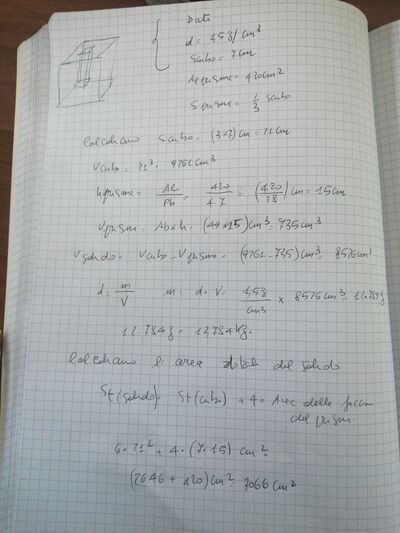 Dati
d = 1,5 g/cm³
S cubo = 7 cm
Al prisma = 420 cm²
S prisma = 1/3 S cubo
Calcoliamo S cubo = (3×7) cm = 21 cm
V cubo = 21³ = 9261 cm³
h prisma = Al/Pb = 420/4·7 = (420/28) cm = 15 cm
V prisma = Ab×h = (49×15) cm³ = 735 cm³
V solido = V cubo - V prisma = (9261 - 735) cm³ = 8526 cm³
d = m/V m = d · V = 1,5 g/cm³ × 8526 cm³ = 12.789 g
12.789 g = 12,789 kg.
Calcoliamo l'area totale del solido
St (solido) = St (cubo) + 4 · Area delle facce
del prisma
6 · 21² + 4 · (7·15) cm² =
(2646 + 420) cm² = 3066 cm²